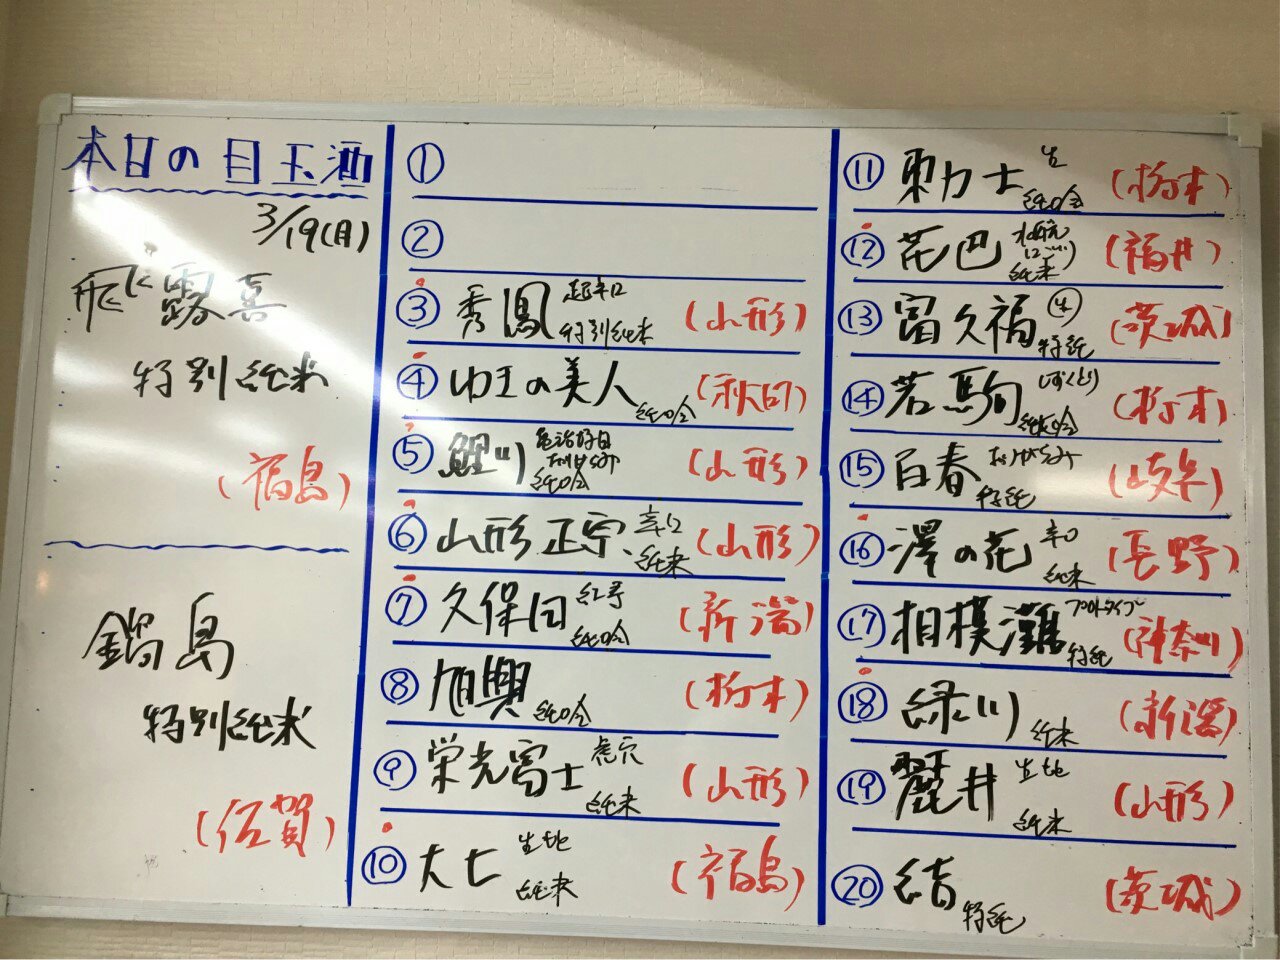 本日の目玉酒
3/19(月)
飛露喜
特別純米
(福島)
鍋島
特別純米
(佐賀)
①
②
③ 秀鳳 超辛口 特別純米 (山形)
④ ゆきの美人 純吟 (秋田)
⑤ 鯉川 純吟 (山形)
⑥ 山形正宗 辛口 純米 (山形)
⑦ 久保田 紅寿 純吟 (新潟)
⑧ 旭興 純吟 (栃木)
⑨ 栄光冨士 虎穴 純米 (山形)
⑩ 大七 生もと 純米 (福島)
⑪ 東力士 生 純吟 (栃木)
⑫ 花巴 純米 (福井)
⑬ 富久福 生 特純 (茨城)
⑭ 若駒 しずくどり (栃木)
⑮ 百春 特純 (岐阜)
⑯ 澤の花 辛口 純米 (長野)
⑰ 相模灘 プロトタイプ 特純 (神奈川)
⑱ 緑川 純米 (新潟)
⑲ 麓井 生もと 純米 (山形)
⑳ 結 特純 (茨城)